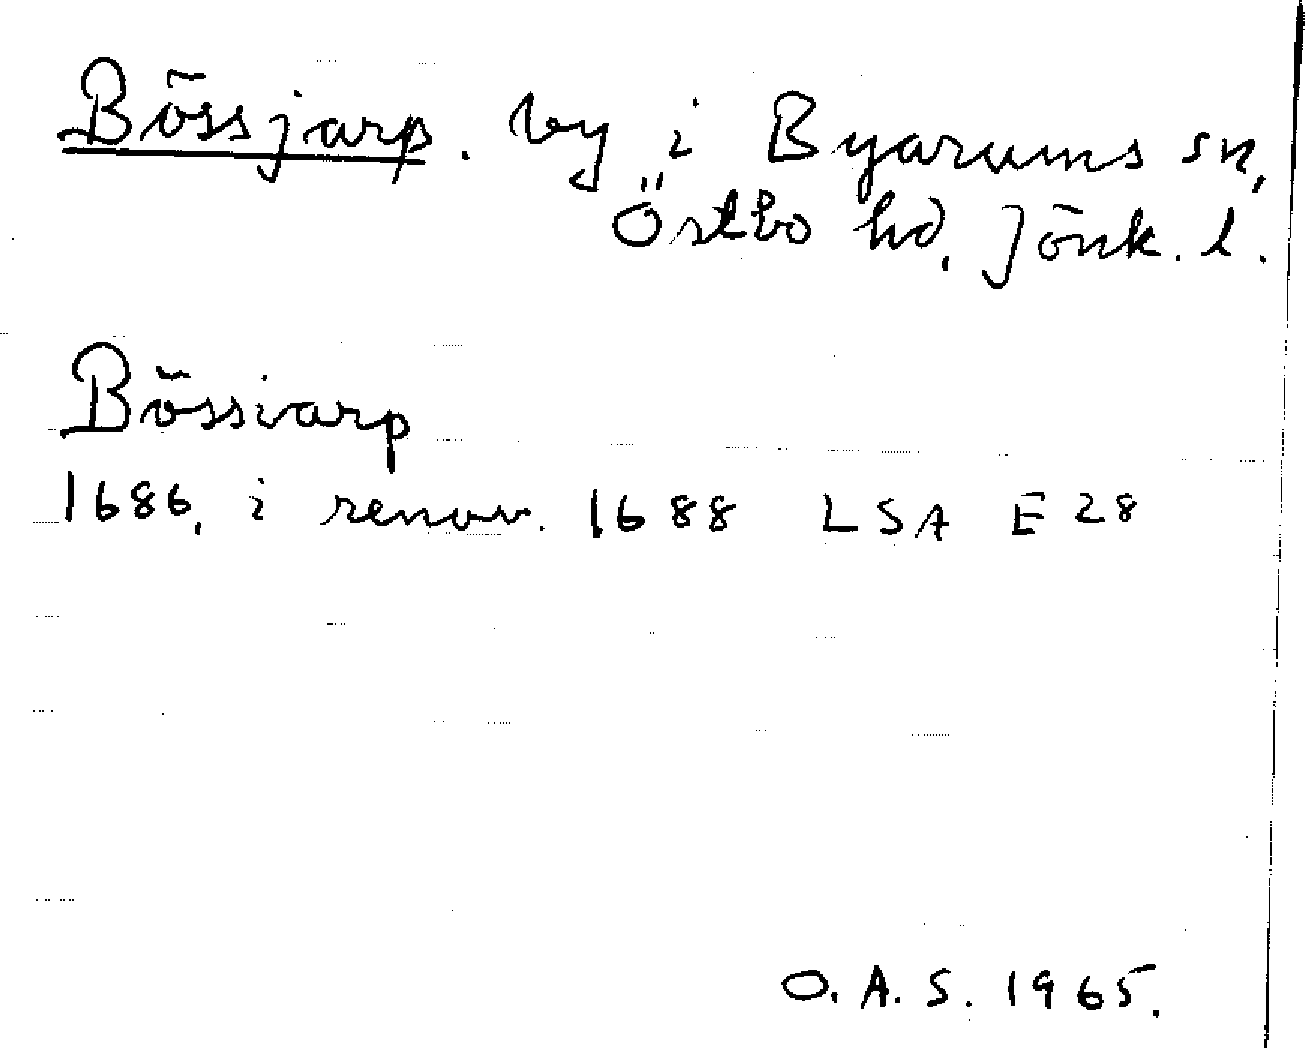 Bössjarp. by i Byarums sn,
Östbo hd, Jönk. l.
Bössiarp
1686, i renov. 1688 LSA E 28
O.A.S. 1965.